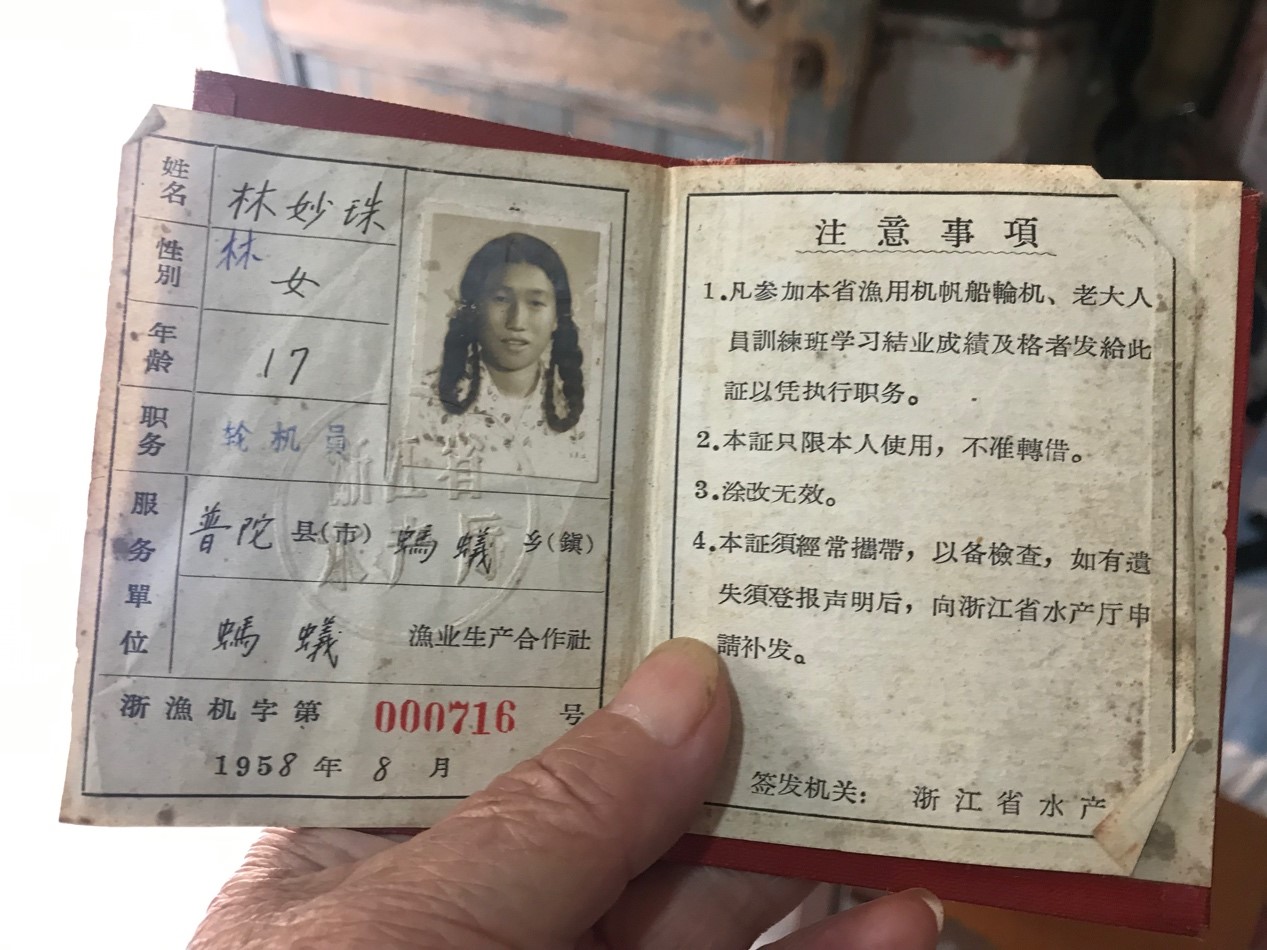 姓名 林妙珠
林
性別 女
年龄 17
职务 轮机員
服务單位 普陀县(市) 螞蟻乡(鎮)
螞蟻 漁业生产合作社
浙漁机字第 000716 号
1958年8月
浙江省
水产厅
注意事項
1.凡参加本省漁用机帆船輪机、老大人
員訓練班学习結业成績及格者发給此
証以凭执行职务。
2.本証只限本人使用，不准轉借。
3.涂改无效。
4.本証須經常攜帶，以备檢查，如有遺
失須登报声明后，向浙江省水产厅申
請补发。
签发机关：浙江省水产